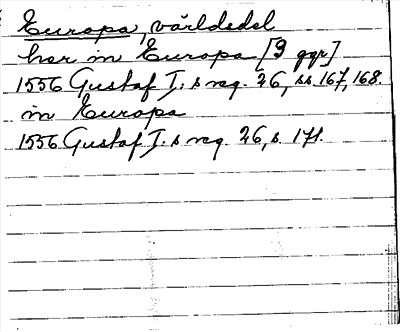 Europa, världsdel
här in Europa [3 ggr]
1556 Gustaf I.s reg. 26, ss. 167, 168.
in Europa
1556 Gustaf I.s reg. 26, s. 171.